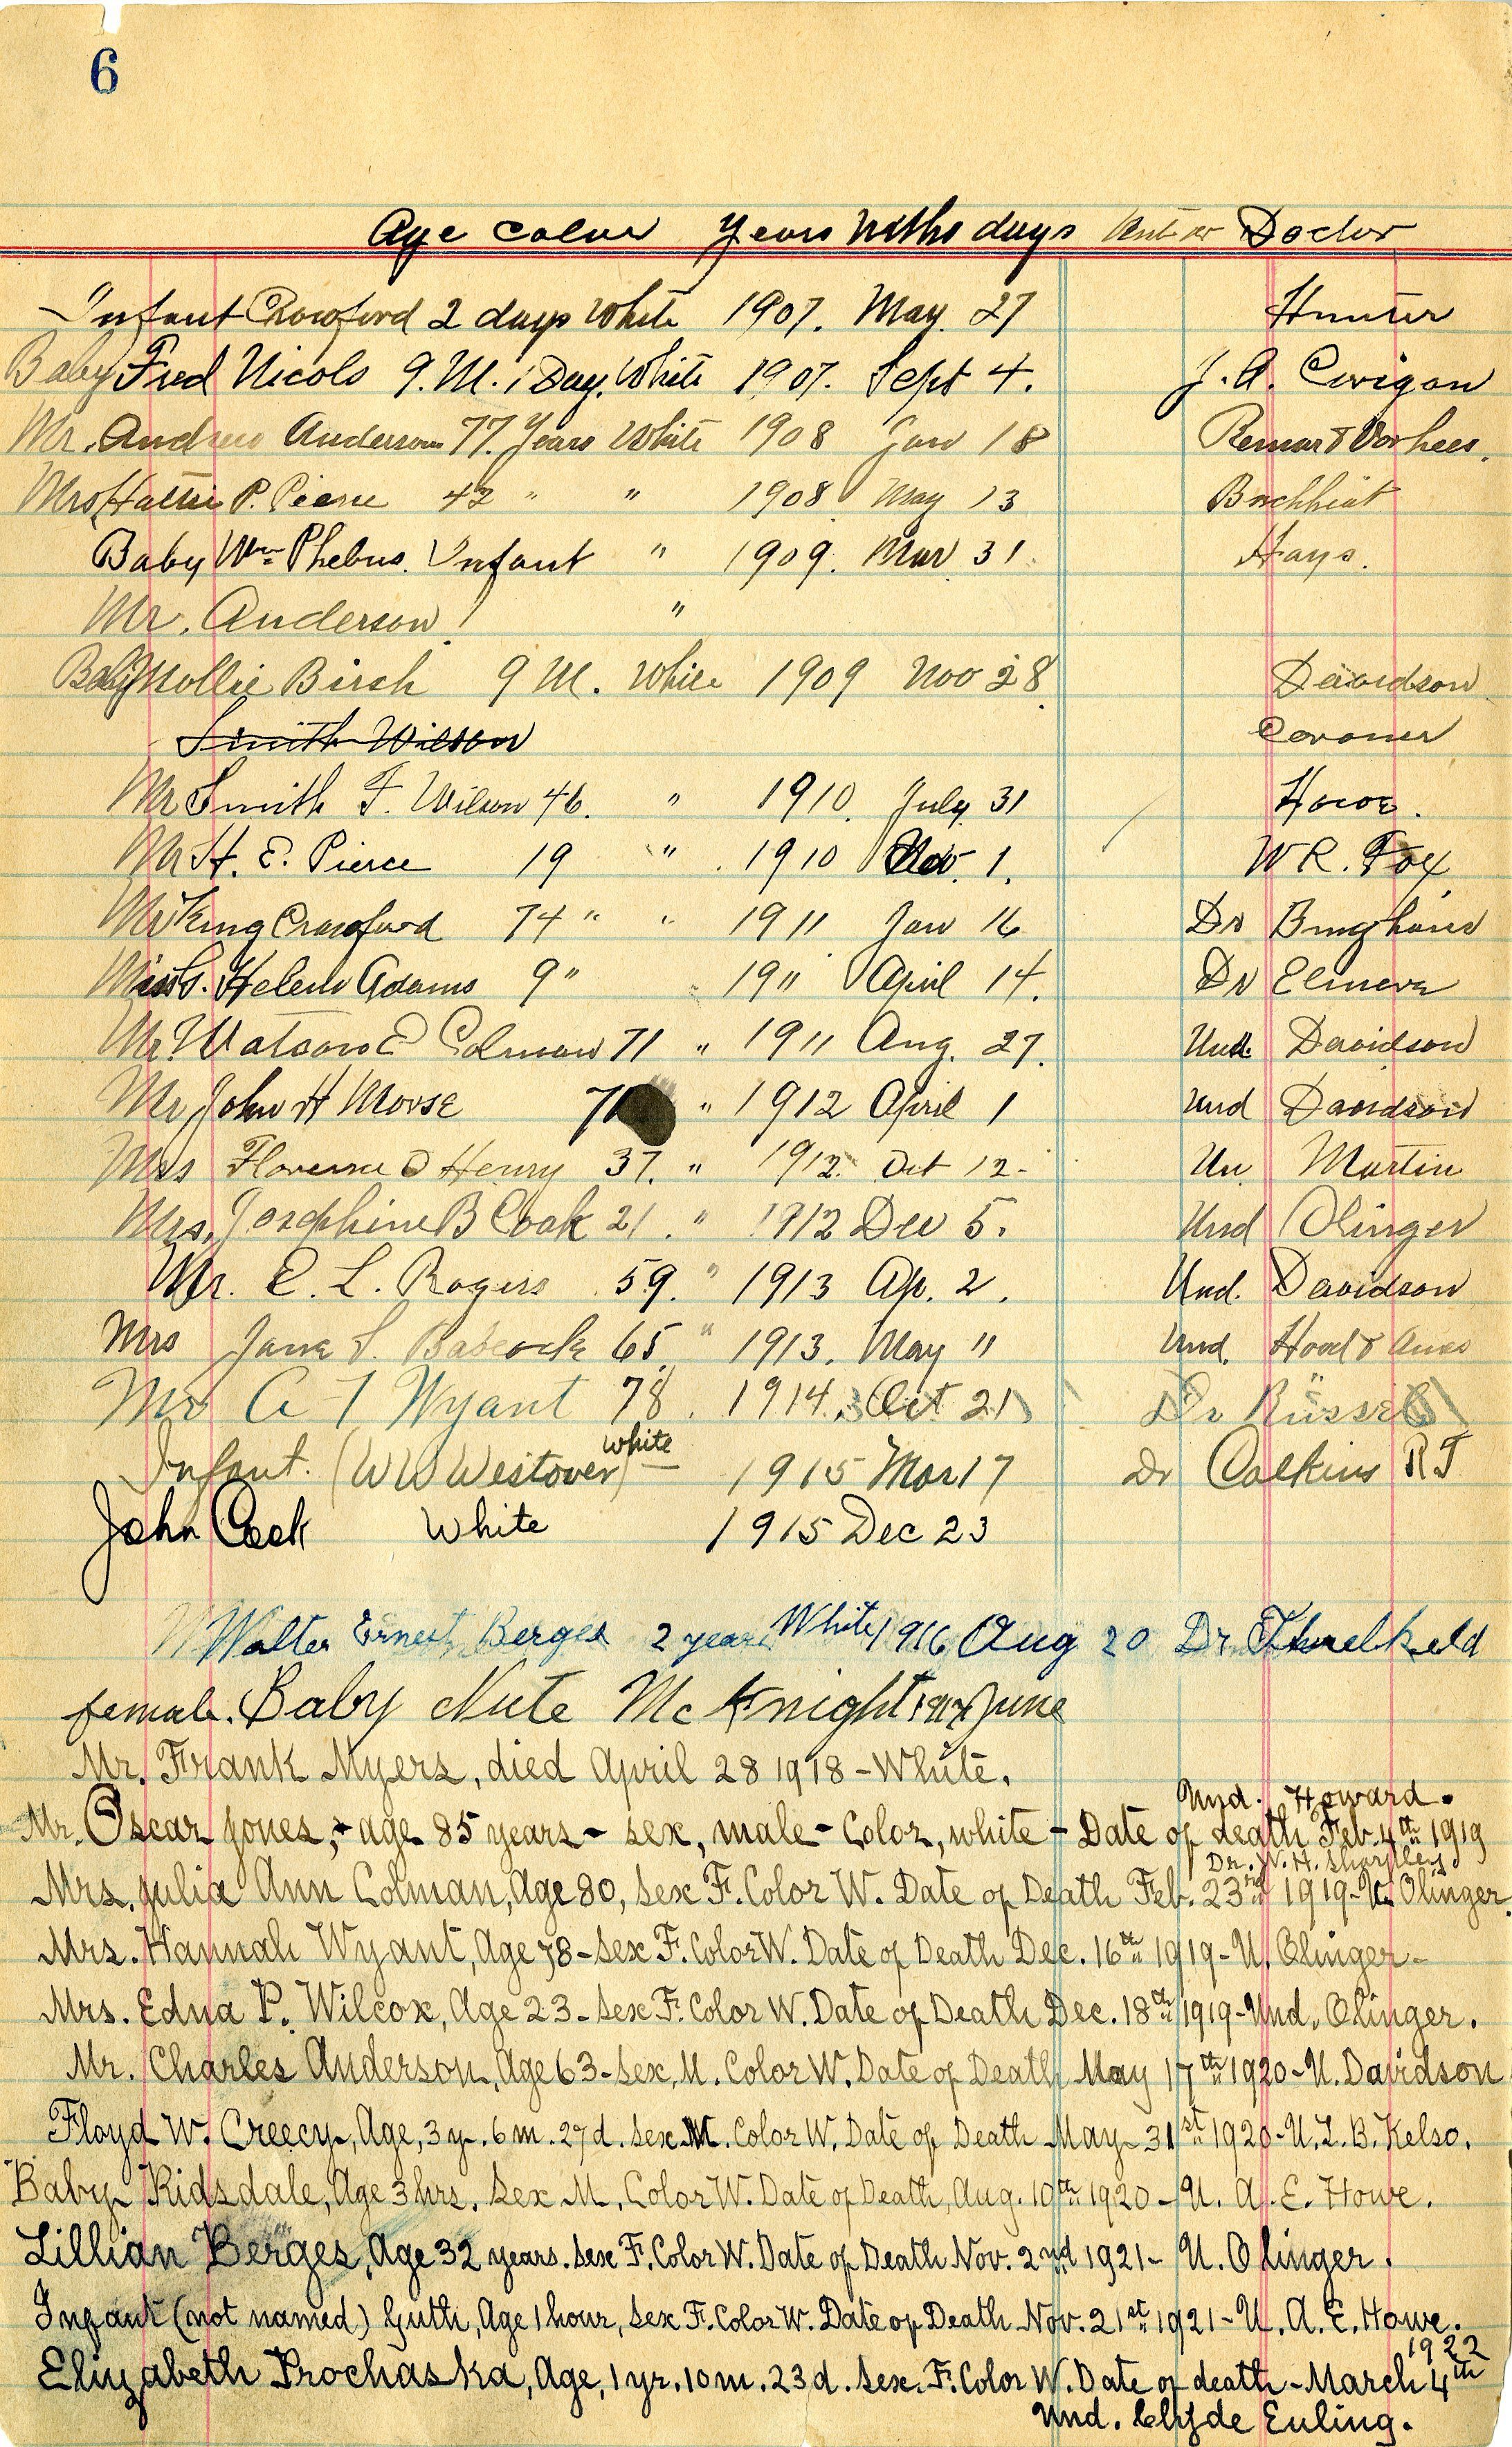 6
Age Color Years Mths days or Doctor
Infant Crawford 2 days White 1907. May. 27 Hunter
Baby Fred Nicols 9. M. 1 Day. White 1907. Sept 4. J. A. Corigan
Mr. Andrew Anderson 77. Years White 1908 Jan 18 & Vorhees.
Mrs Hattie P. Pierce 42 " " 1908 May 13
Baby Wm Phebus. Infant " 1909. Mar 31 Hays.
Mr. Anderson "
Baby Mollie Birch 9 M. White 1909 Nov 28 Davidson
Smith Wilson Coroner
Mr Smith F. Wilson 46. " 1910. July 31 Howe.
Mr H. E. Pierce 19 " 1910 Nov. 1. W R. Fox
Mr King Crawford 74 " " 1911 Jan 16 Dr Bingham
Miss. Helen Adams 9 " 1911 April 14. Dr
Mr Watson E Colman 71 " 1911 Aug. 27. Und. Davidson
Mr John H Morse 71 " 1912 April 1 Und Davidson
Mrs Florence O Henry 37. " 1912. Oct 12. Un. Martin
Mrs. Josephine B Cook 21. " 1912 Dec 5. Und Olinger
Mr. E. L. Rogers 59. " 1913 Ap. 2. Und. Davidson
Mrs Jane S. Babcock 65 " 1913. May 11 Und. Hood &
Mr A T Wyant 78. 1914. Oct 21 Dr Russel
Infant. (W W Westover) White 1915 Mar 17 Dr Calkins R J
John Cook White 1915 Dec 23
Walter Ernest Berges 2 years White 1916 Aug 20 Dr Threlkeld
female. Baby Nute McKnight 1917 June
Mr. Frank Myers, died April 28 1918 - White.
Und. Howard.
Mr. Oscar Jones, - age 85 years - sex, male - Color, white - Date of death Feb. 4th 1919
Dr. W. H. Sharpley
Mrs. Julia Ann Colman, Age 80, Sex F. Color W. Date of Death Feb. 23rd 1919 - U. Olinger.
Mrs. Hannah Wyant, Age 78 - Sex F. Color W. Date of Death Dec. 16th 1919 - U. Olinger -
Mrs. Edna P. Wilcox, Age 23 - Sex F. Color W. Date of Death Dec. 18th 1919 - Und. Olinger.
Mr. Charles Anderson, Age 63 - Sex, M. Color W. Date of Death May 17th 1920 - U. Davidson
Floyd W. Creecy, Age, 3 y. 6 m. 27 d. Sex M. Color W. Date of Death May 31st 1920 - U. L. B. Kelso.
Baby Ridsdale, Age 3 hrs. Sex M. Color W. Date of Death, Aug. 10th 1920 - U. A. E. Howe.
Lillian Berges, Age 32 years. Sex F. Color W. Date of Death Nov. 2nd 1921 - U. Olinger.
Infant (not named) Guth, Age 1 hour, Sex F. Color W. Date of Death Nov. 21st 1921 - U. A. E. Howe.
1922
Elizabeth Prochaska, Age, 1 yr. 10 m. 23 d. Sex. F. Color W. Date of death - March 4th
Und. Clyde Euling.